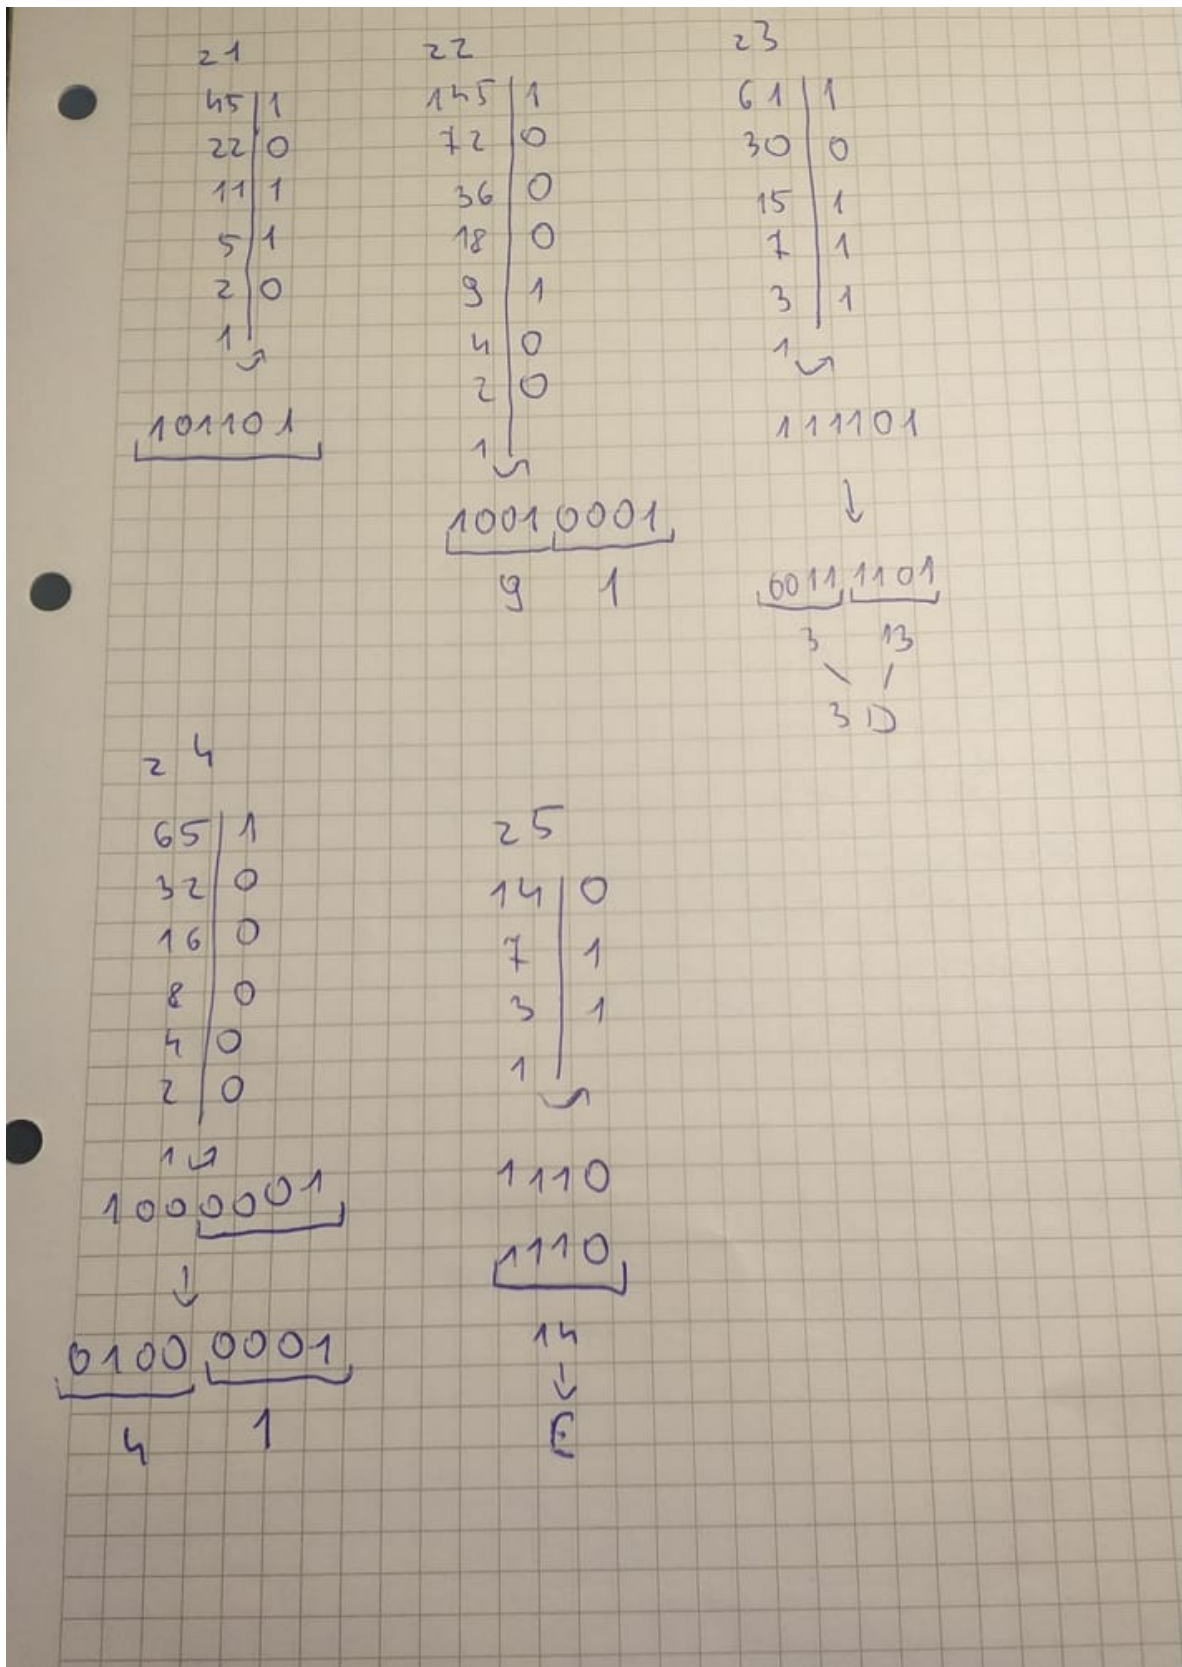 z1
45 | 1
22 | 0
11 | 1
5 | 1
2 | 0
1
101101
z2
145 | 1
72 | 0
36 | 0
18 | 0
9 | 1
4 | 0
2 | 0
1
1001 0001
9 1
z3
61 | 1
30 | 0
15 | 1
7 | 1
3 | 1
1
111101
↓
0011 1101
3 13
3D
z4
65 | 1
32 | 0
16 | 0
8 | 0
4 | 0
2 | 0
1
1000001
↓
0100 0001
4 1
z5
14 | 0
7 | 1
3 | 1
1
1110
1110
14
↓
E